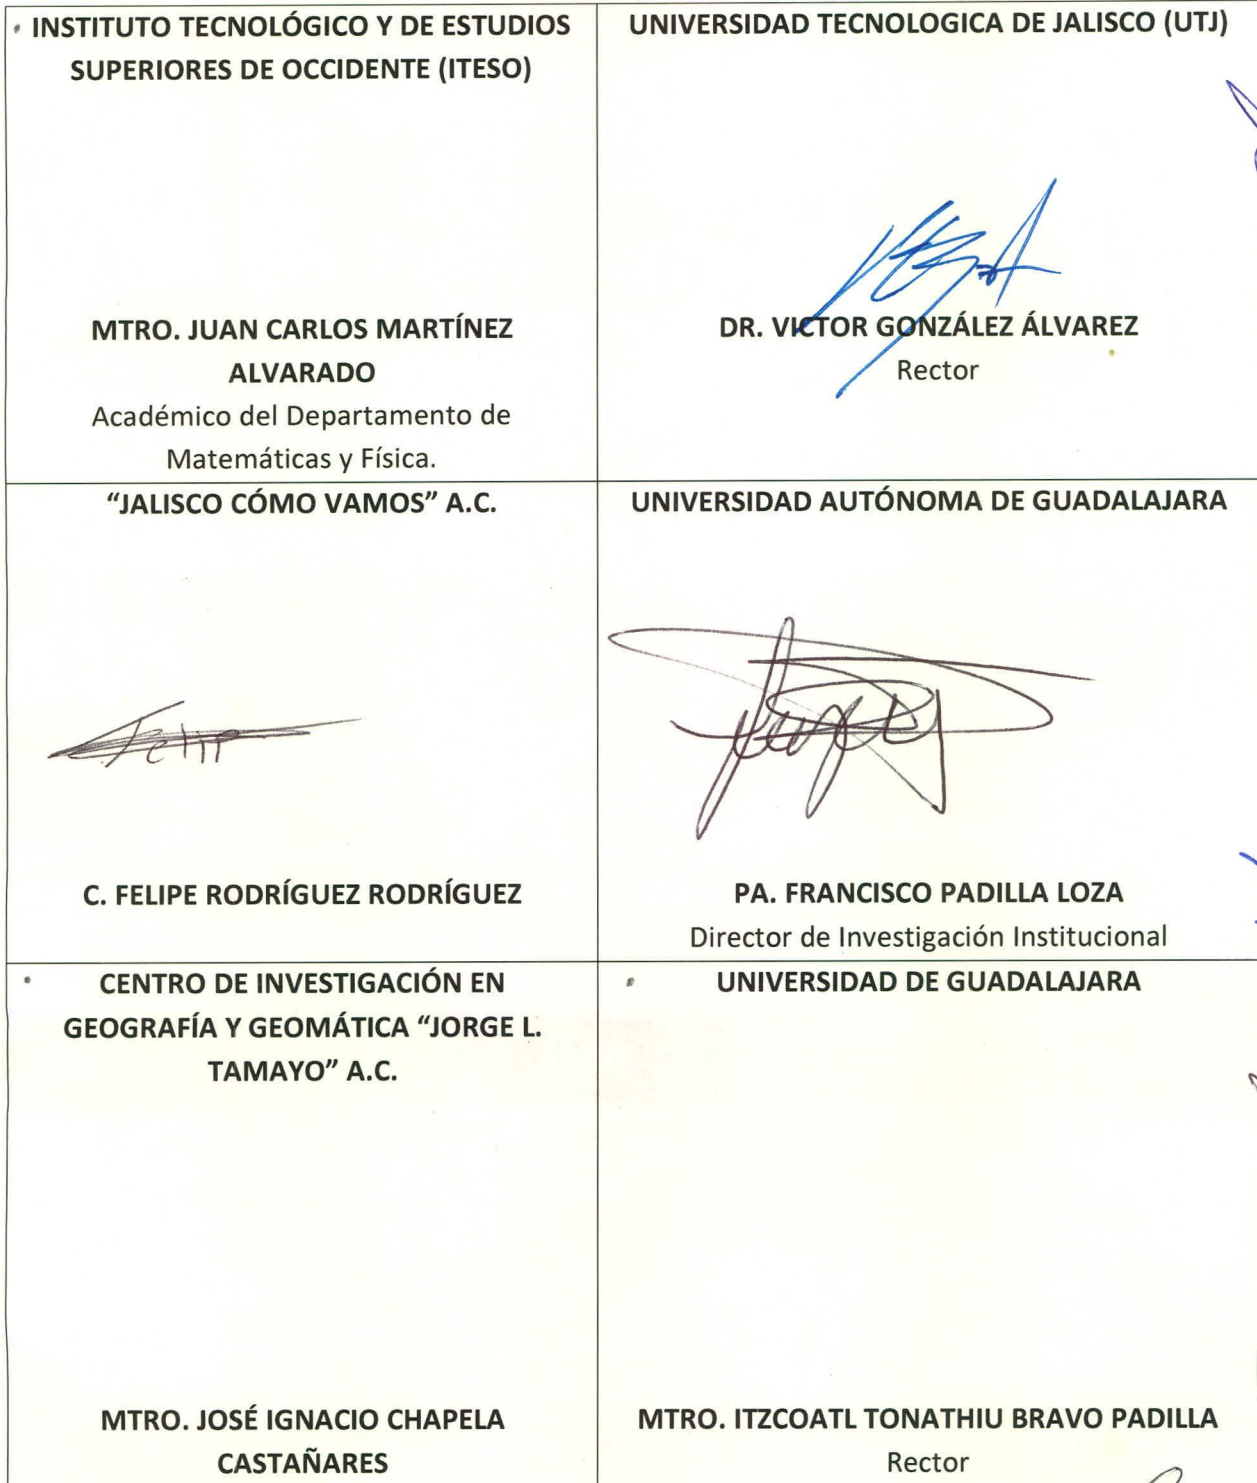 INSTITUTO TECNOLÓGICO Y DE ESTUDIOS
SUPERIORES DE OCCIDENTE (ITESO)
MTRO. JUAN CARLOS MARTÍNEZ
ALVARADO
Académico del Departamento de
Matemáticas y Física.
UNIVERSIDAD TECNOLOGICA DE JALISCO (UTJ)
DR. VICTOR GONZÁLEZ ÁLVAREZ
Rector
“JALISCO CÓMO VAMOS” A.C.
Felip
C. FELIPE RODRÍGUEZ RODRÍGUEZ
UNIVERSIDAD AUTÓNOMA DE GUADALAJARA
PA. FRANCISCO PADILLA LOZA
Director de Investigación Institucional
CENTRO DE INVESTIGACIÓN EN
GEOGRAFÍA Y GEOMÁTICA “JORGE L.
TAMAYO” A.C.
MTRO. JOSÉ IGNACIO CHAPELA
CASTAÑARES
UNIVERSIDAD DE GUADALAJARA
MTRO. ITZCOATL TONATHIU BRAVO PADILLA
Rector